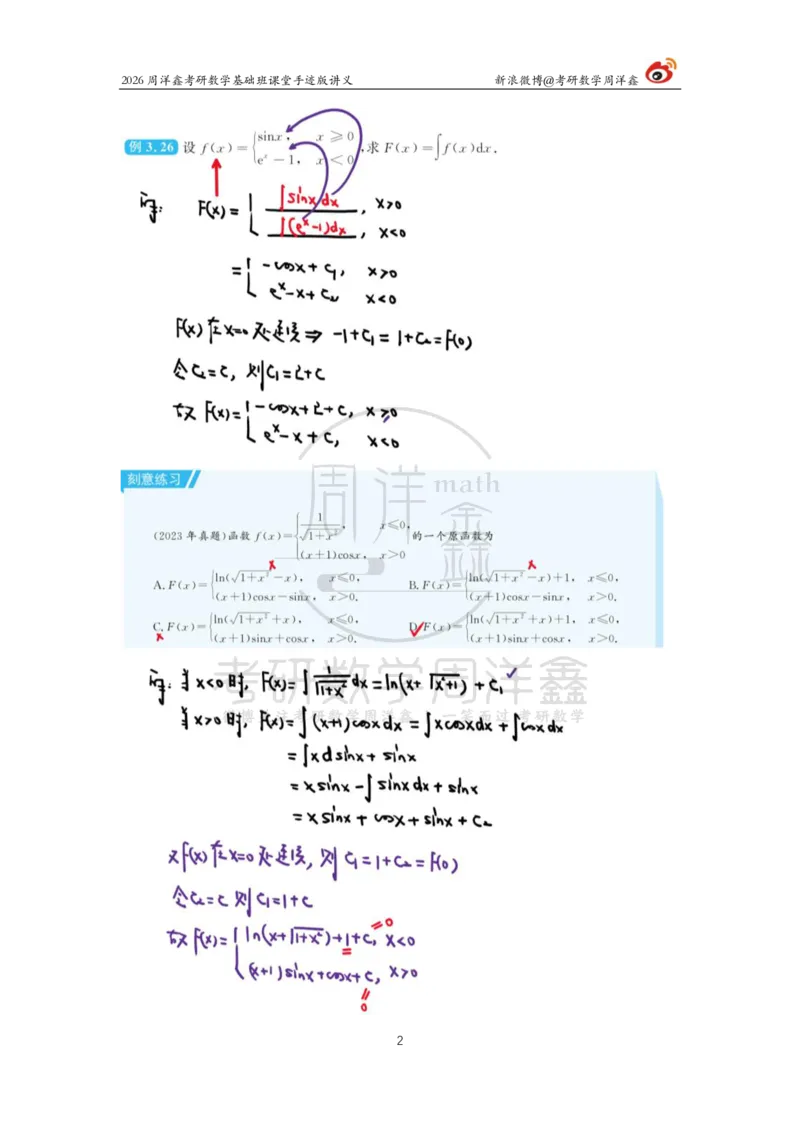 2026 周洋鑫考研数学基础班课堂手迹版讲义 新浪微博@考研数学周洋鑫
例 3.26 设 f(x)={sinx, x≥0 eˣ-1, x<0 ,求 F(x)=∫f(x)dx.
F(x)={∫sinxdx, x>0
∫(eˣ-1)dx, x<0
={-cosx+C₁, x>0
eˣ-x+C₂ x<0
F(x)在x=0处连续⇒ -1+C₁=1+C₂=F(0)
令C₂=C, 则C₁=2+C
故 F(x)={-cosx+2+C, x≥0
eˣ-x+C, x<0
周洋 math
鑫
刻意练习
(2023 年真题)函数 f(x)={1/√1+x², x≤0, (x+1)cosx, x>0 的一个原函数为
A. F(x)={ln(√1+x²-x), x≤0, (x+1)cosx-sinx, x>0. B. F(x)={ln(√1+x²-x)+1, x≤0, (x+1)cosx-sinx, x>0.
C. F(x)={ln(√1+x²+x), x≤0, (x+1)sinx+cosx, x>0. D. F(x)={ln(√1+x²+x)+1, x≤0, (x+1)sinx+cosx, x>0.
考研数学周洋鑫
当x<0时, F(x)=∫1/√1+x² dx=ln(x+√x²+1)+C₁
当x>0时, F(x)=∫(x+1)cosxdx=∫xcosxdx+∫cosxdx
=∫xdsinx+sinx
=xsinx-∫sinxdx+sinx
=xsinx+cosx+sinx+C₂
又F(x)在x=0处连续, 则C₁=1+C₂=F(0)
令C₂=C 则C₁=1+C
=0
故F(x)={ln(x+√1+x²)+1+C, x<0
(x+1)sinx+cosx+C, x>0
=0
2